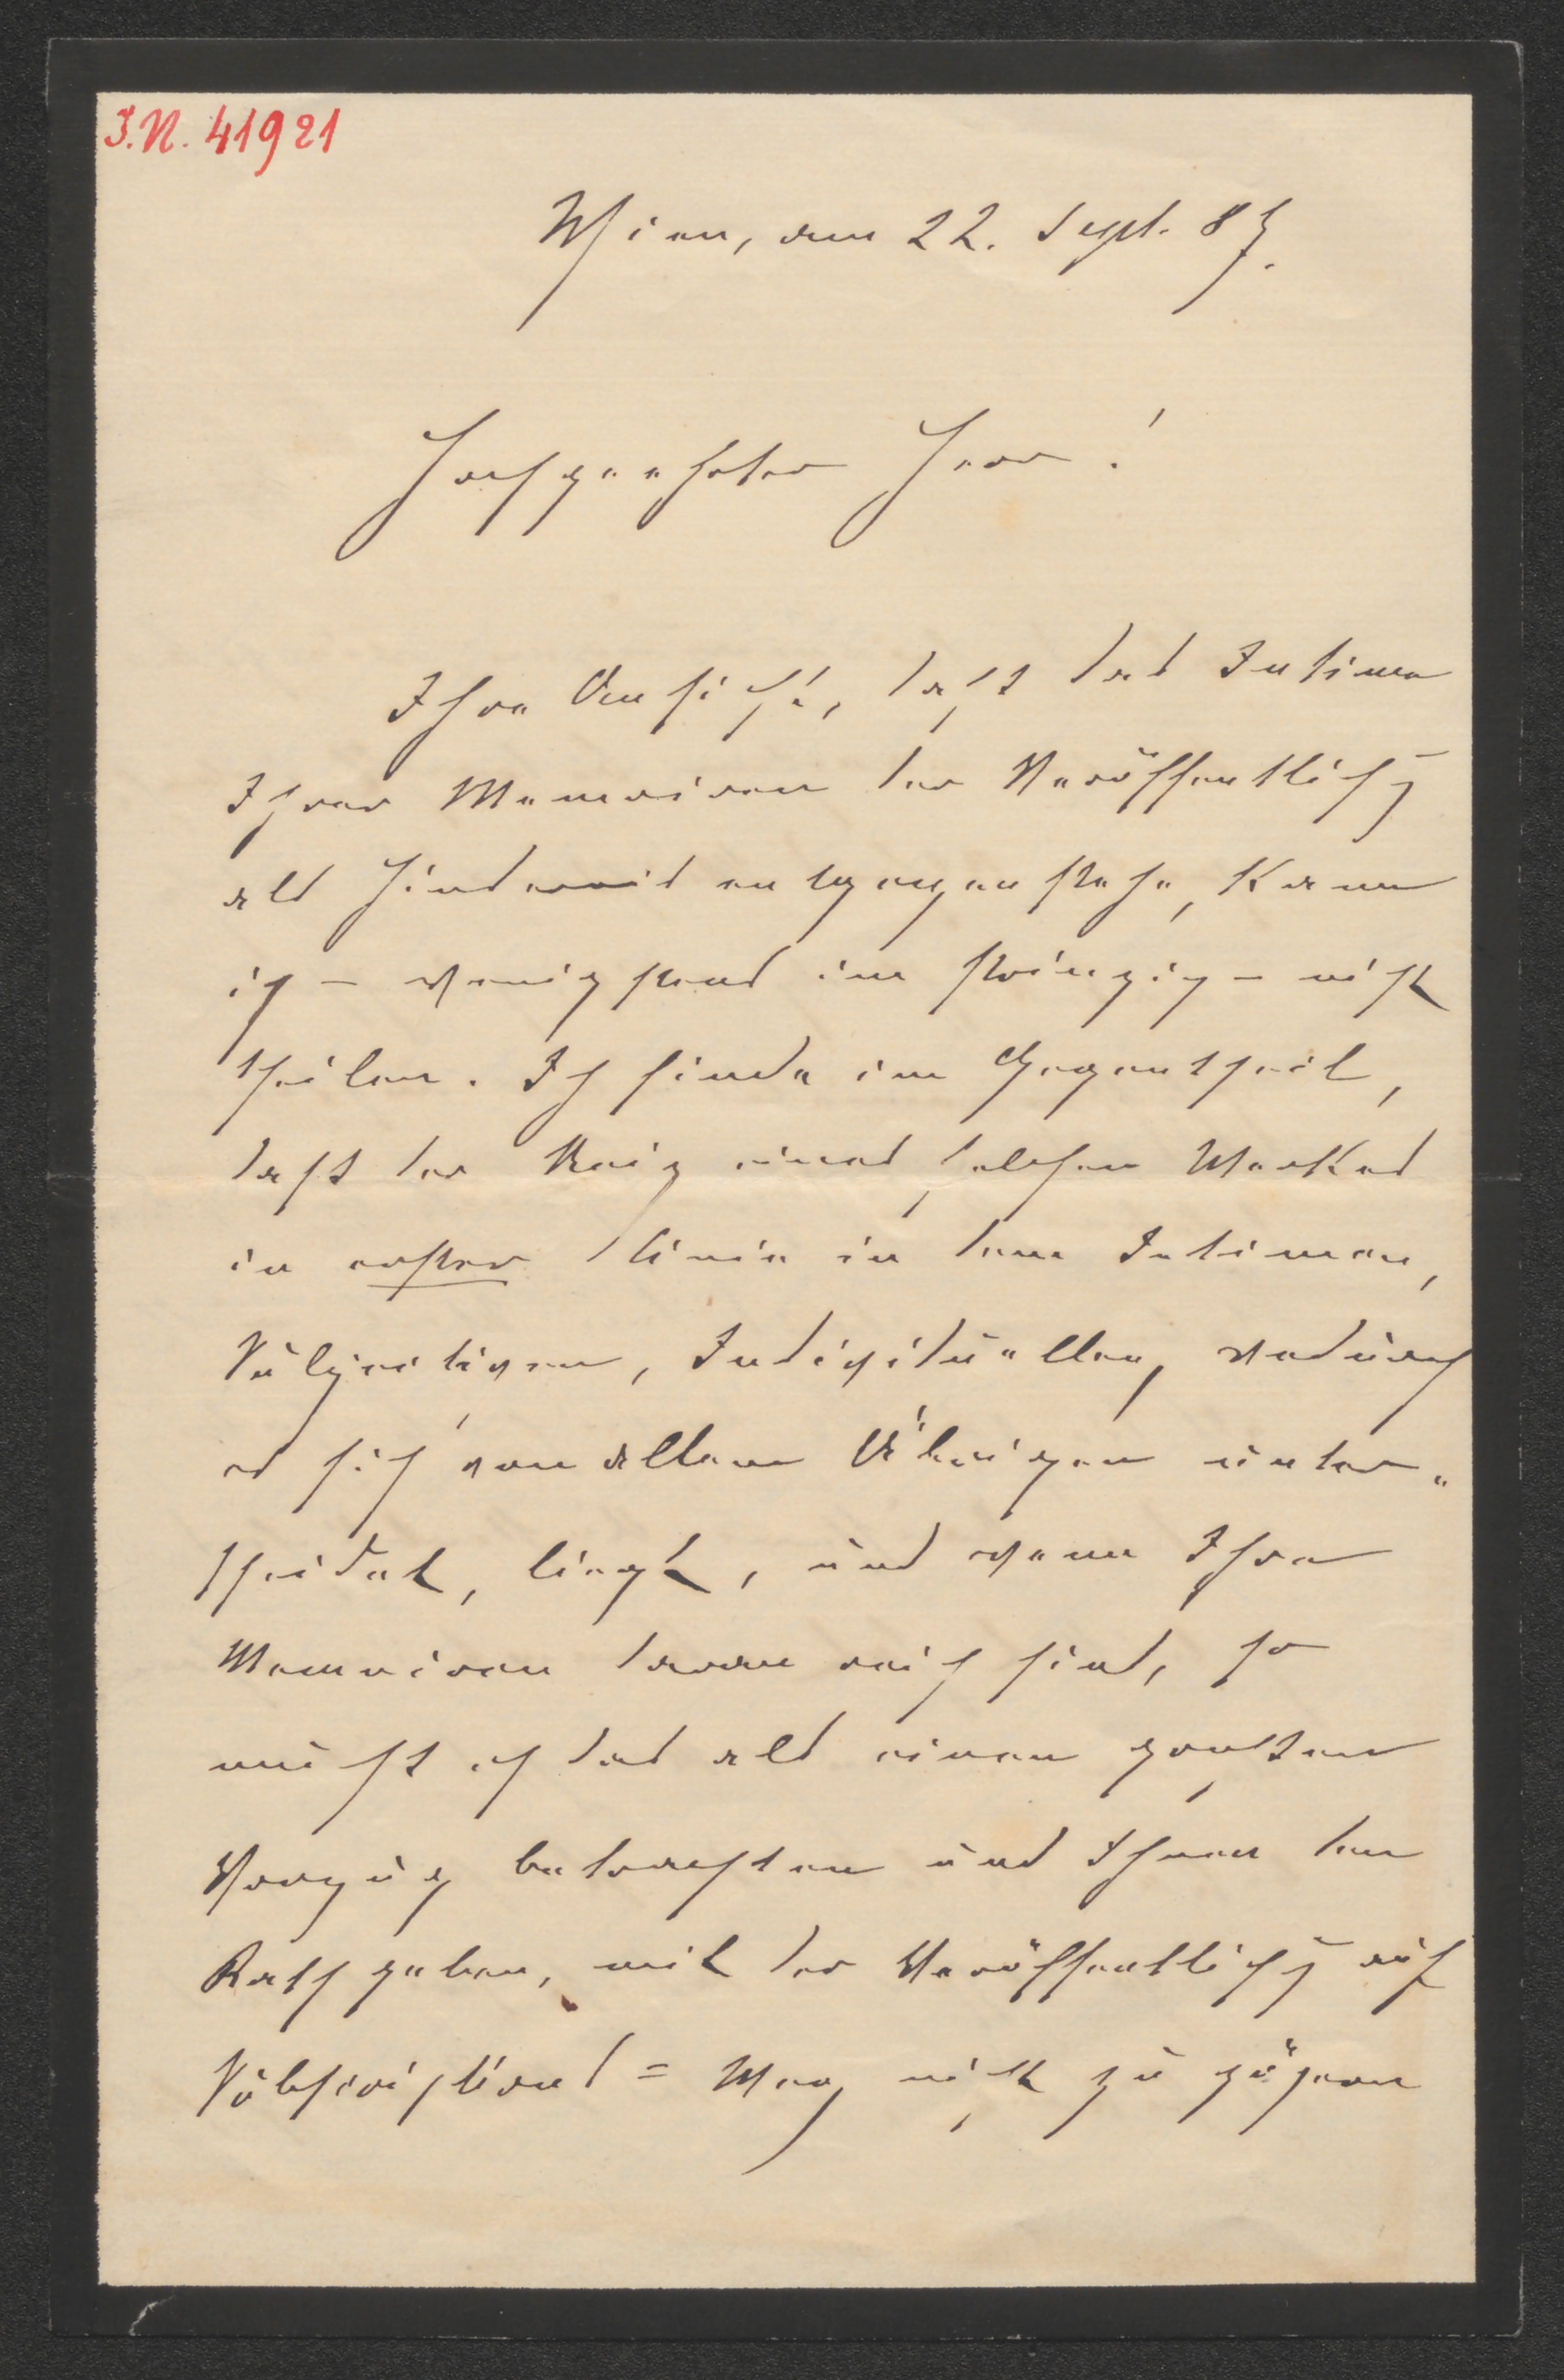 I.N. 41921
Wien, den 22. Sept. 87.
Hochgeehrter Herr!
Ihre Ansicht, daß das Intime
Ihrer Memoiren der Veröffentlichg
als Hinderniß entgegenstehe, kann
ich – wenigstens im Prinzip – nicht
theilen. Ich finde im Gegentheil,
daß der Reiz eines solchen Werkes
in erster Linie in dem Intimen,
Subjectiven, Individuellen, wodurch
es sich von allem Übrigen unter-
scheidet, liegt, und wenn Ihre
Memoiren daran reich sind, so
müßt ich das als einen großen
Vorzug betrachten und Ihnen den
Rath geben, mit der Veröffentlichg auf
Subscriptions-Weg nicht zu zögern